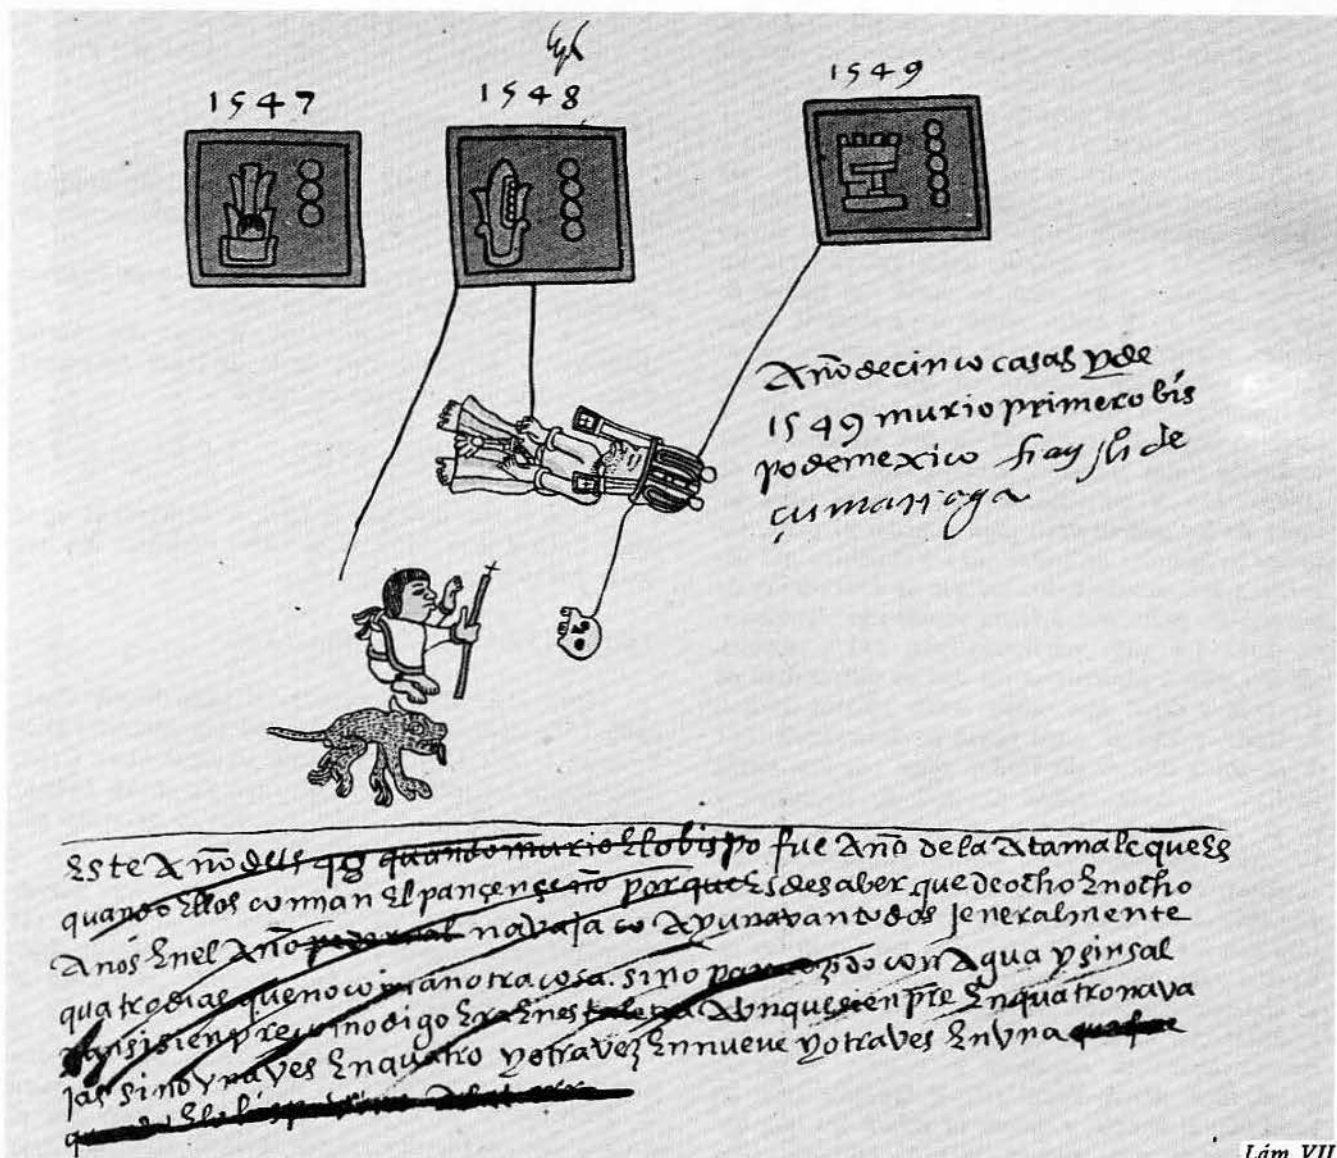 1547
1548
1549
Año de cinco casas y de
1549 murio primer obis
po de mexico fray ju° de
çumarraga
Este Año de 115 49 quando murio El obispo fue Año de la Atamal que Es
quando Ellos comian El pan çençeño porque Es de saber que de ocho En ocho
Años En el Año pedernal navaja o Ayunavan todos jeneralmente
quatro dias que no comian otra cosa. sino pan cozido con Agua y sin sal
sienpre como digo Era En esta letra Aunque sienpre En quatro nava
jas sino una ves En quatro y otra vez En nueve y otra ves En una
Lám. VII